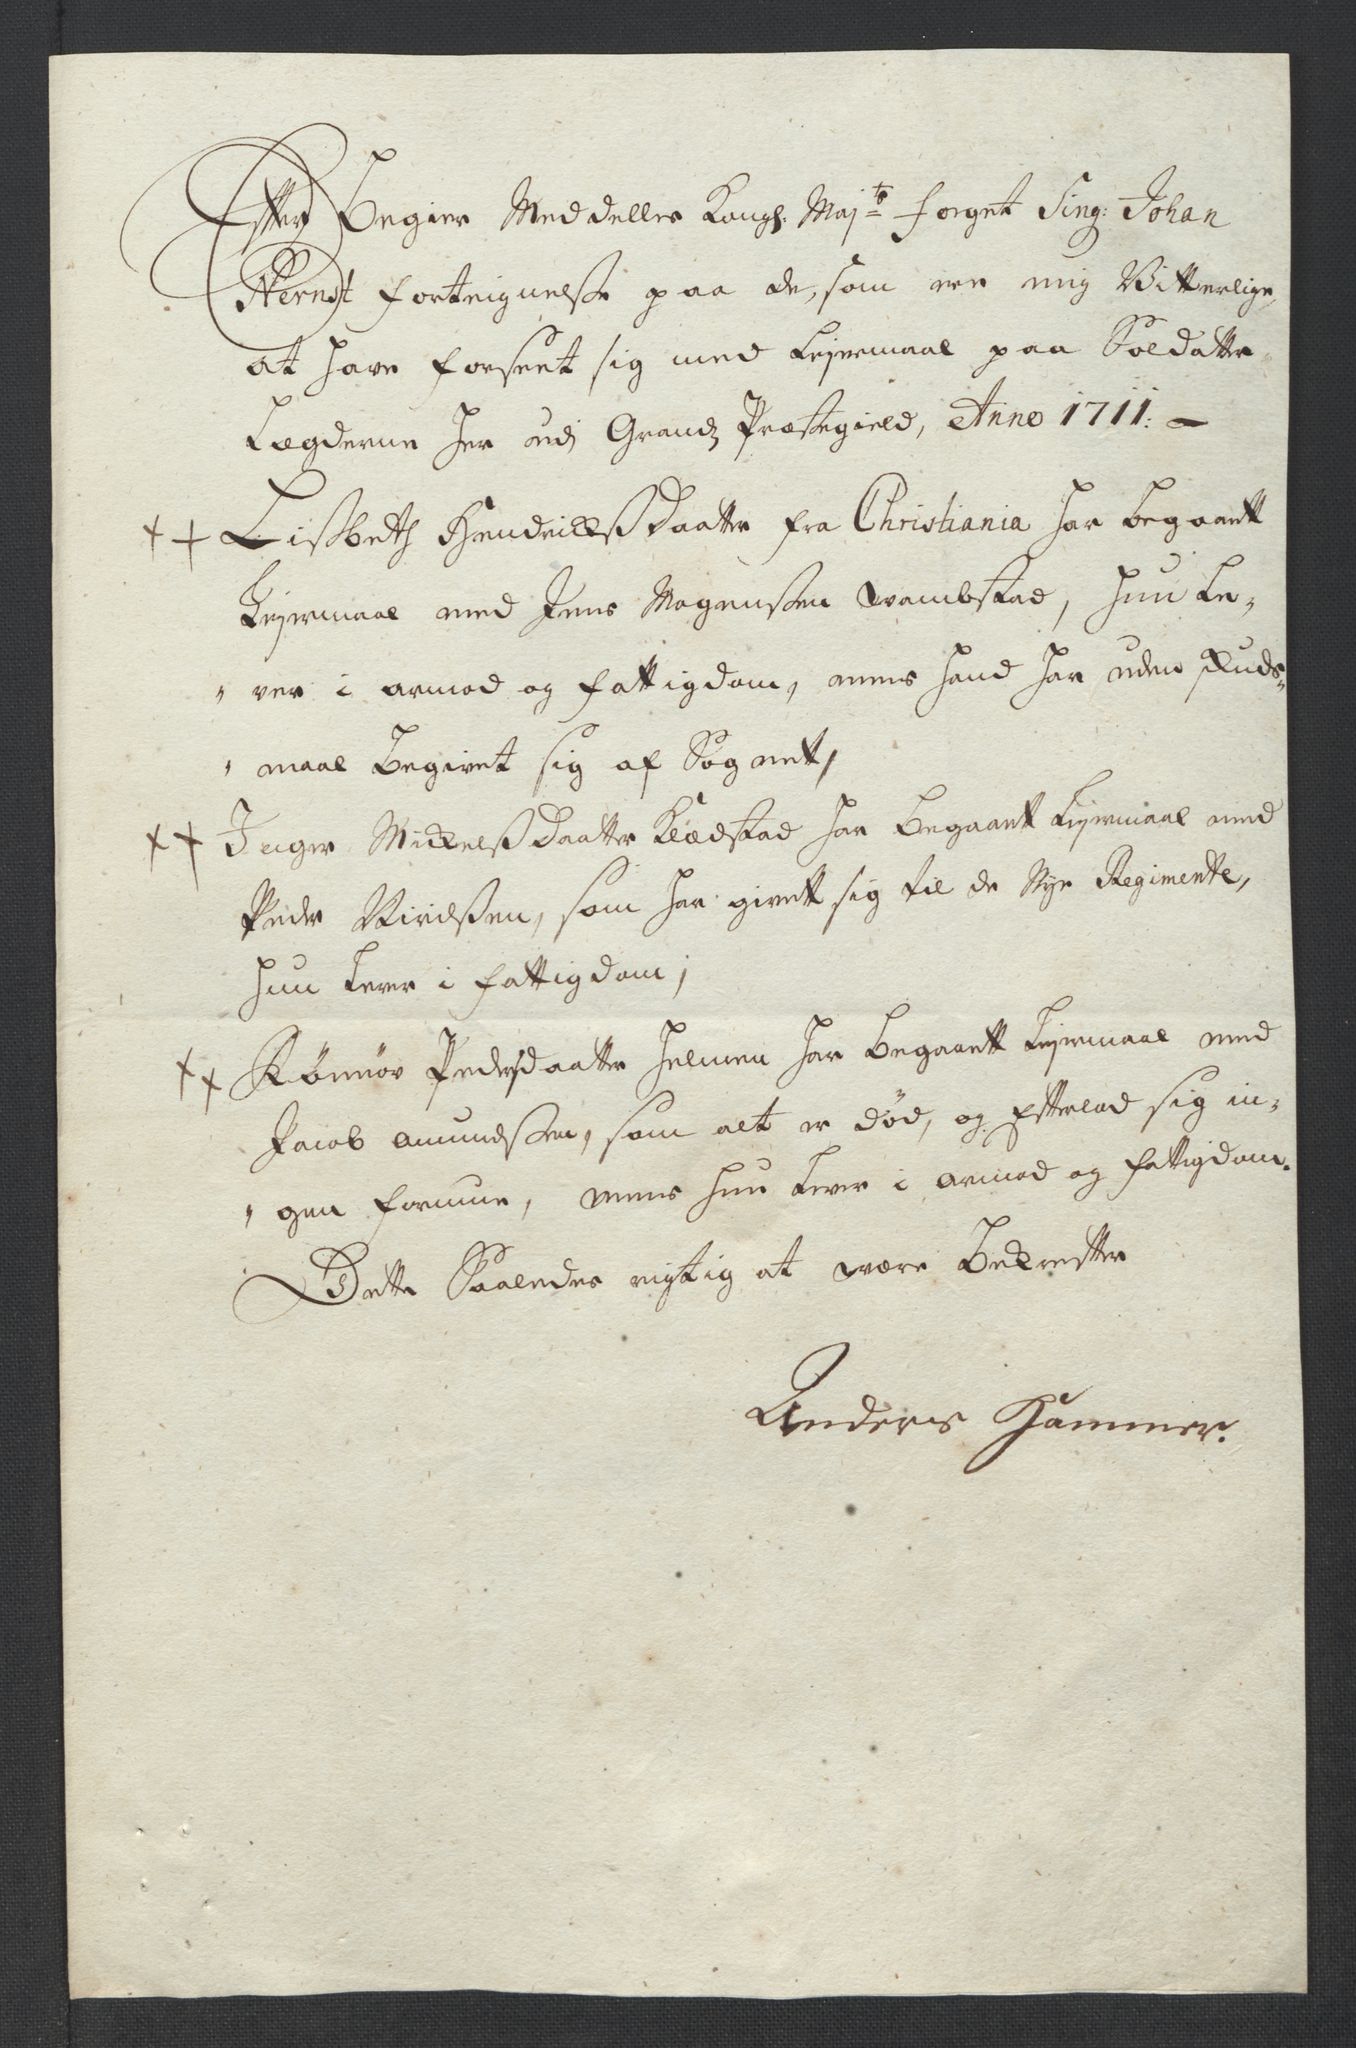 Efter Begier Meddelles Kongl: Majts foeget Sing: Johan
Nernst forteignelsse paa de, som ere mig Vitterlige
at have forseet sig med Leyermaal paa Soldatte
Lægderne her udj Grandz Præstegield, Anno 1711:
++ Lissbeth Hendrichs Daatter fra Christiania har begaaett
Leyermaal med Jens Mogenssen Wambstad, hun Le-
ver i armod og fattigdom, mens hand har uden skuds-
maal Begivet sig af Sognet,
++ Inger Mickelss Daatter Klædstad har Begaaett Leyermaal med
Peder, som har givett sig til de Nye Regimente,
hun Lever i fattigdom,
++ Rønnov Pedersdaatter Helmen har Begaaett Leyermaal med
Jacob Amundssen, som alt er død, og Efterlod sig in-
gen formue, mens hun Lever i armod og fattigdom.
Dette Saaledes rigtig at være Bekrefter
Anders Hammer.